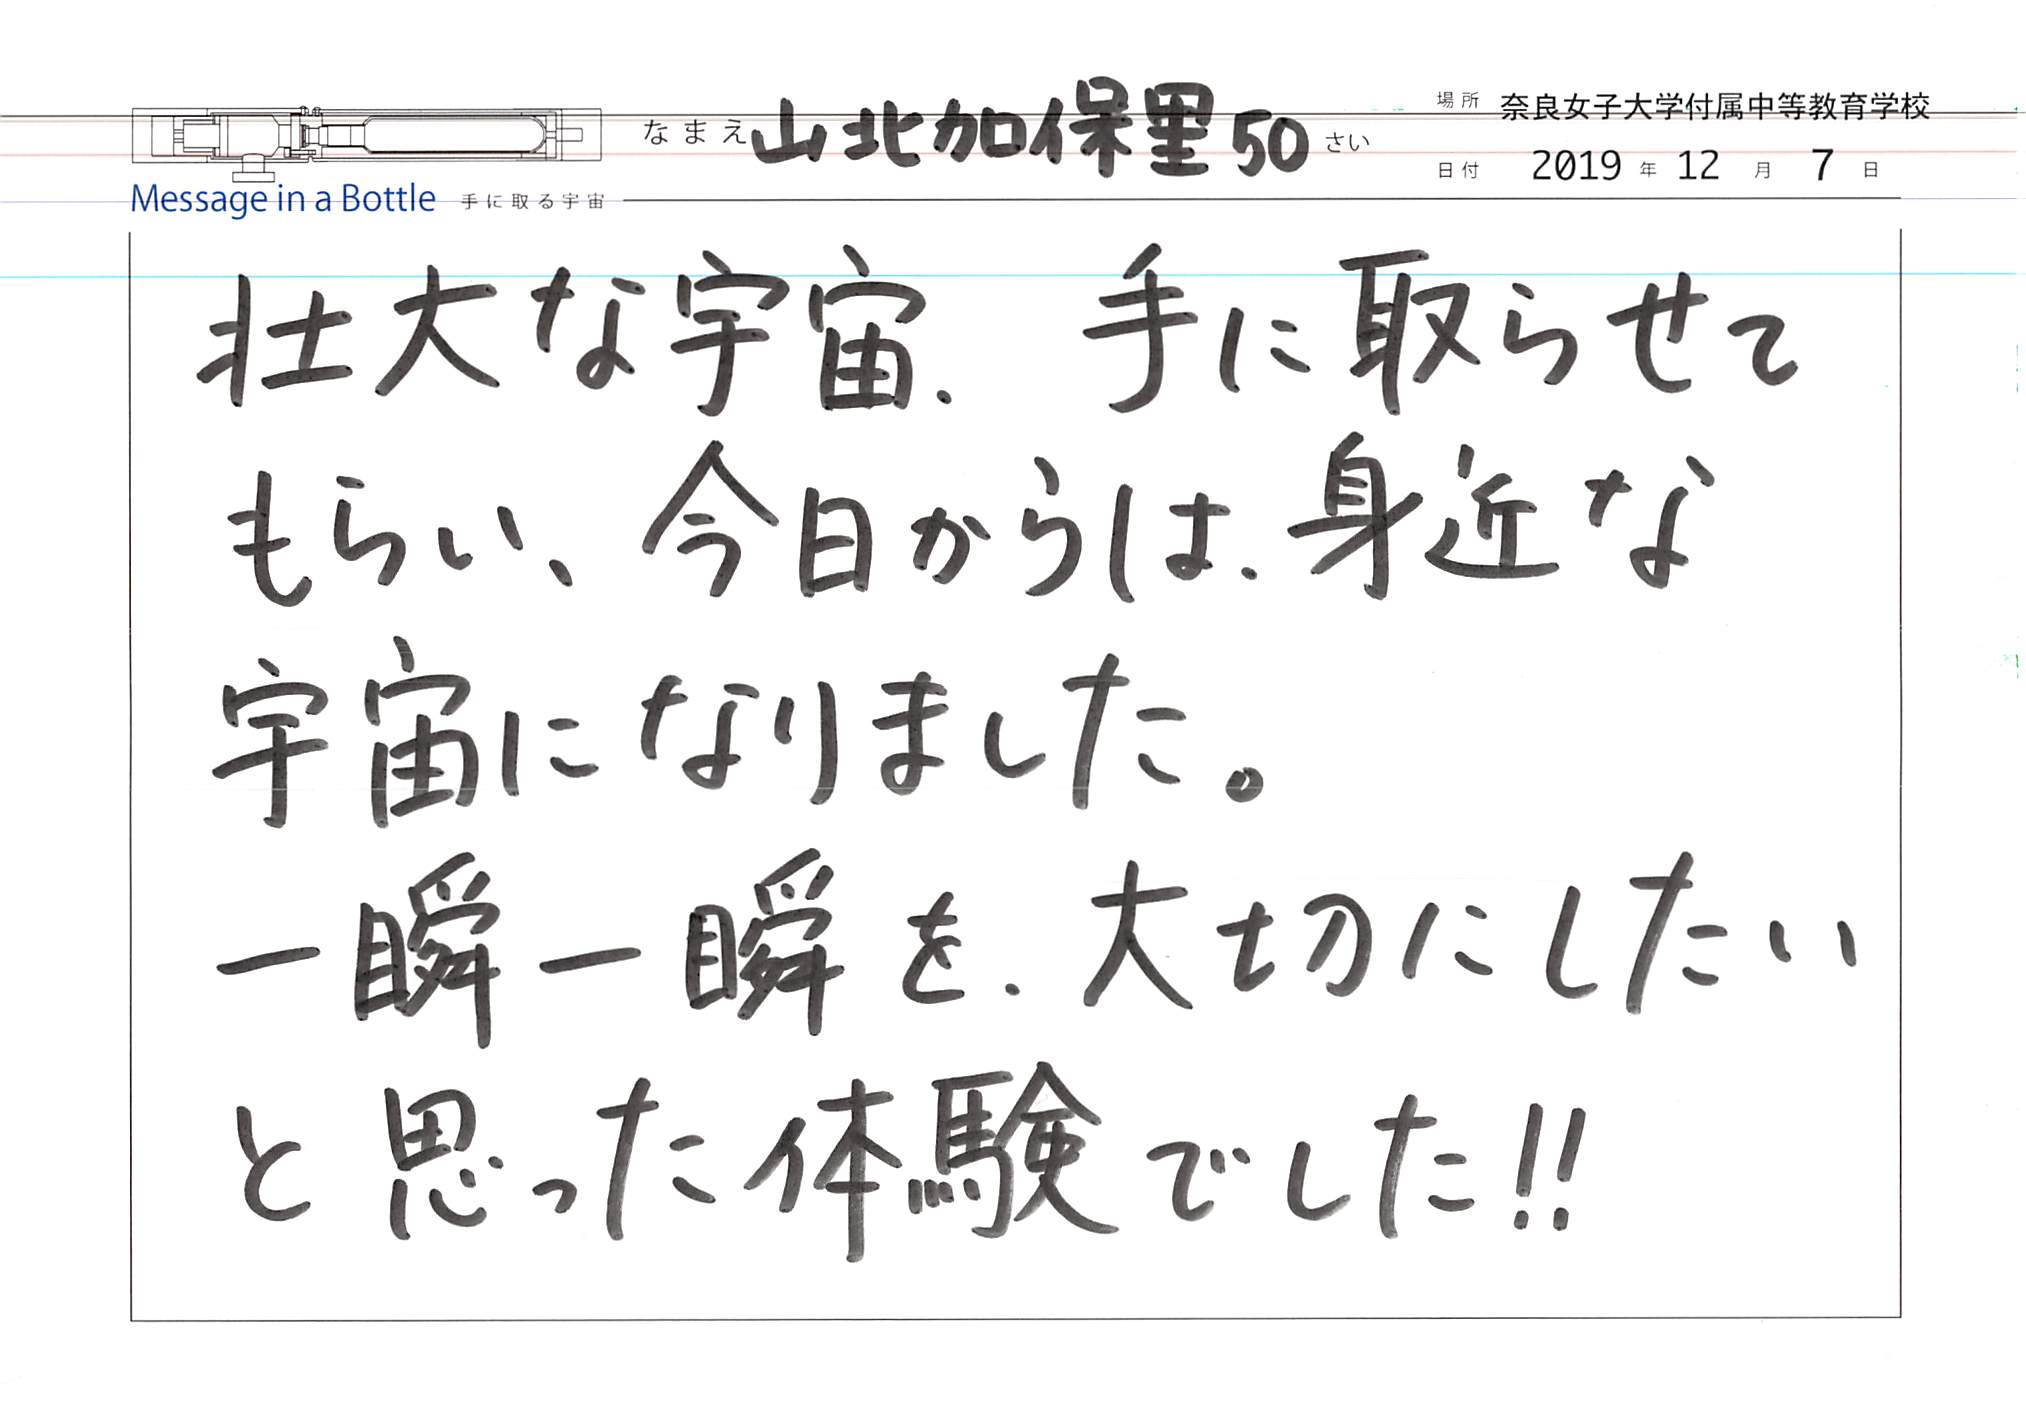 なまえ 山北加保里 50 さい
場所 奈良女子大学付属中等教育学校
日付 2019 年 12 月 7 日
Message in a Bottle 手に取る宇宙
壮大な宇宙、手に取らせて
もらい、今日からは、身近な
宇宙になりました。
一瞬一瞬を、大切にしたい
と思った体験でした!!